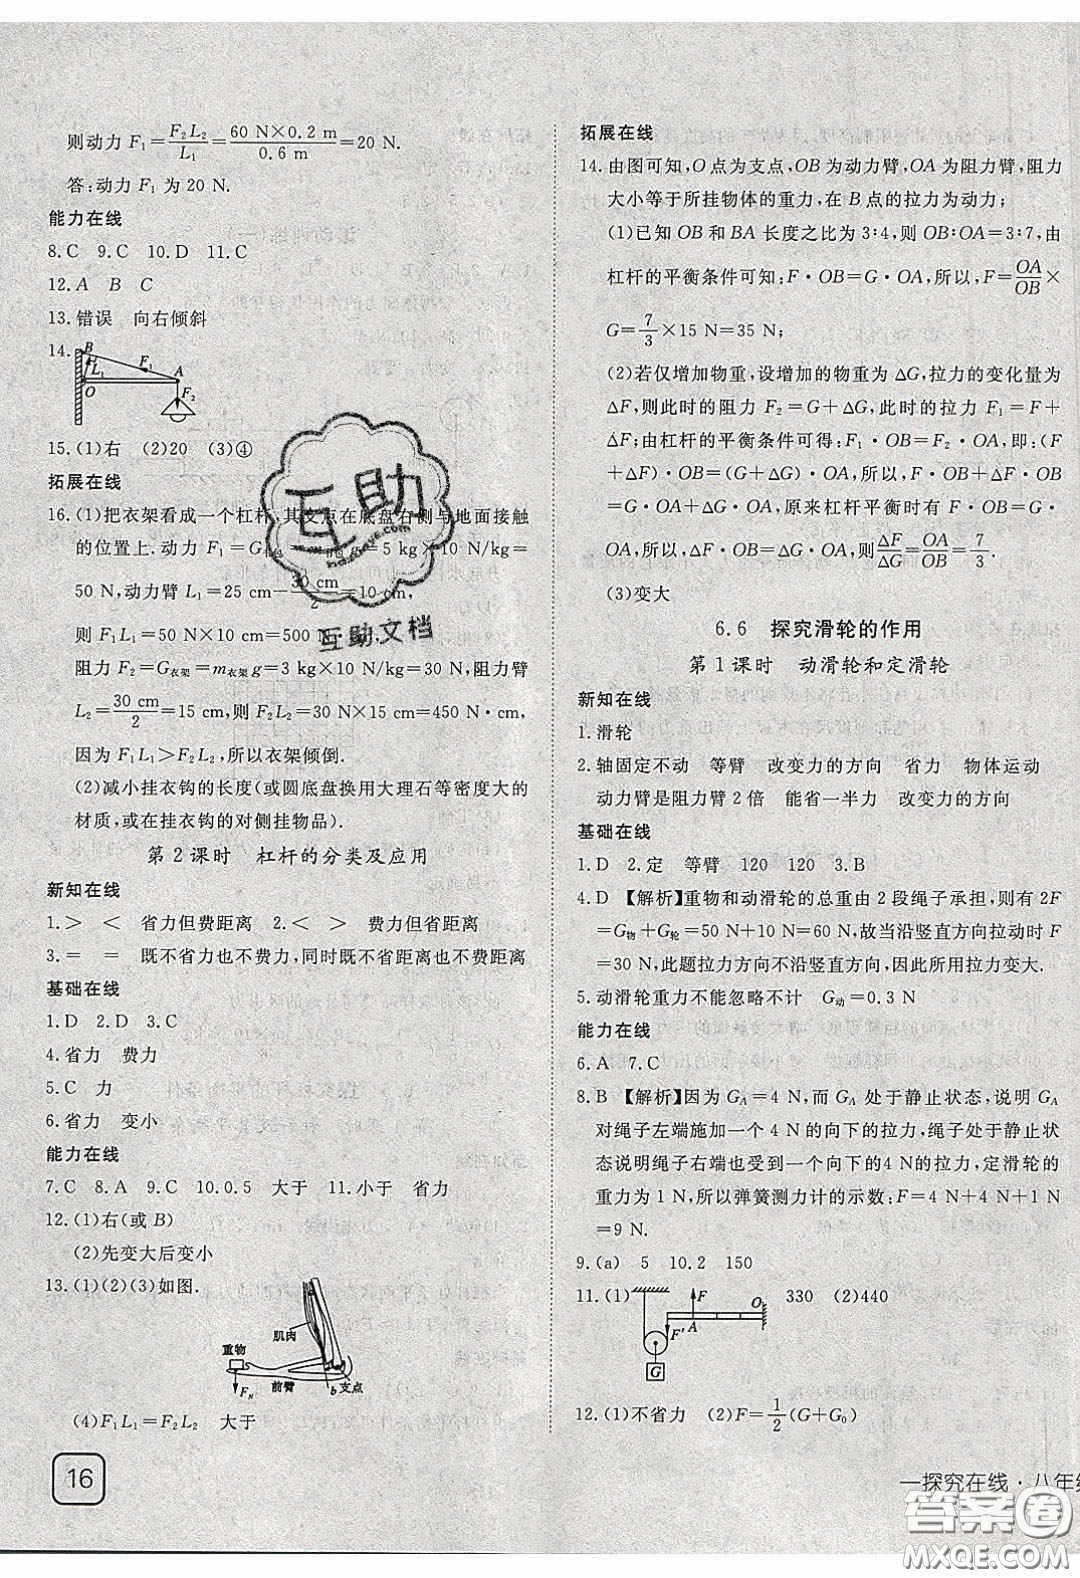 则动力 F₁=F₂L₂/L₁=60 N×0.2 m/0.6 m=20 N.
答:动力 F₁ 为 20 N.
能力在线
8.C 9.C 10.D 11.C
12.A B C
13.错误 向右倾斜
14.
B
L₁ F₁ A
O F₂
15.(1)右 (2)20 (3)④
拓展在线
16.(1)把衣架看成一个杠杆,其支点在底盘右侧与地面接触
的位置上.动力 F₁=G g=5 kg×10 N/kg=
50 N,动力臂 L₁=25 cm-30 cm/2=10 cm,
则 F₁L₁=50 N×10 cm=500 N·
阻力 F₂=G衣架=m衣架g=3 kg×10 N/kg=30 N,阻力臂
L₂=30 cm/2=15 cm,则 F₂L₂=30 N×15 cm=450 N·cm,
因为 F₁L₁>F₂L₂,所以衣架倾倒.
(2)减小挂衣钩的长度(或圆底盘换用大理石等密度大的
材质,或在挂衣钩的对侧挂物品).
第2课时 杠杆的分类及应用
新知在线
1.> < 省力但费距离 2.< > 费力但省距离
3.= = 既不省力也不费力,同时既不省距离也不费距离
基础在线
1.D 2.D 3.C
4.省力 费力
5.C 力
6.省力 变小
能力在线
7.C 8.A 9.C 10.0.5 大于 11.小于 省力
12.(1)右(或 B)
(2)先变大后变小
13.(1)(2)(3)如图.
肌肉
重物
F_N 前臂 b 支点
(4)F₁L₁=F₂L₂ 大于
16
拓展在线
14.由图可知,O 点为支点,OB 为动力臂,OA 为阻力臂,阻力
大小等于所挂物体的重力,在 B 点的拉力为动力;
(1)已知 OB 和 BA 长度之比为 3:4,则 OB:OA=3:7,由
杠杆的平衡条件可知:F·OB=G·OA,所以,F=OA/OB×
G=7/3×15 N=35 N;
(2)若仅增加物重,设增加的物重为 ΔG,拉力的变化量为
ΔF,则此时的阻力 F₂=G+ΔG,此时的拉力 F₁=F+
ΔF;由杠杆的平衡条件可得:F₁·OB=F₂·OA,即:(F
+ΔF)·OB=(G+ΔG)·OA,所以,F·OB+ΔF·OB=
G·OA+ΔG·OA,原来杠杆平衡时有 F·OB=G·
OA,所以,ΔF·OB=ΔG·OA,则ΔF/ΔG=OA/OB=7/3.
(3)变大
6.6 探究滑轮的作用
第1课时 动滑轮和定滑轮
新知在线
1.滑轮
2.轴固定不动 等臂 改变力的方向 省力 物体运动
动力臂是阻力臂 2 倍 能省一半力 改变力的方向
基础在线
1.D 2.定 等臂 120 120 3.B
4.D 【解析】重物和动滑轮的总重由 2 段绳子承担,有 2F
=G物+G轮=50 N+10 N=60 N,故当沿竖直方向拉动时 F
=30 N,此题拉力方向不沿竖直方向,因此所用拉力变大.
5.动滑轮重力不能忽略不计 G动=0.3 N
能力在线
6.A 7.C
8.B 【解析】因为 G_A=4 N,而 G_A 处于静止状态,说明 G_A
对绳子左端施加一个 4 N 的向下的拉力,绳子处于静止状
态说明绳子右端也受到一个向下的4 N的拉力,定滑轮的
重力为 1 N,所以弹簧测力计的示数:F=4 N+4 N+1 N
=9 N.
9.(a) 5 10.2 150
11.(1) 330 (2)440
F O
F′ A
G
12.(1)不省力 (2)F=1/2(G+G₀)
一探究在线·八年级
互助
互助文档
答案圈
MXQE.COM